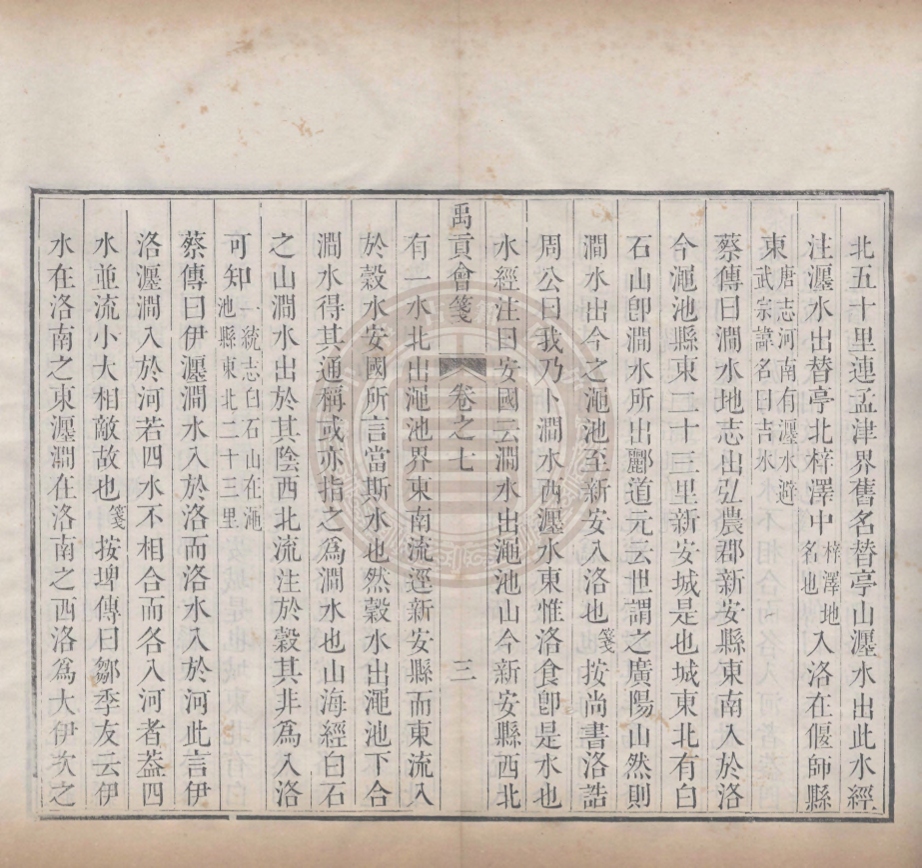 北五十里連孟津界舊名替亭山瀍水出此水經
注瀍水出替亭北梓澤中梓澤地名也入洛在偃師縣
東唐志河南有瀍水避武宗諱名曰吉水
蔡傳曰澗水地志出弘農郡新安縣東南入於洛
今澠池縣東二十三里新安城是也城東北有白
石山卽澗水所出酈道元云世謂之廣陽山然則
澗水出今之澠池至新安入洛也箋按尚書洛誥
周公曰我乃卜澗水西瀍水東惟洛食卽是水也
水經注曰安國云澗水出澠池山今新安縣西北
禹貢會箋 卷之七 三
有一水北出澠池界東南流逕新安縣而東流入
於穀水安國所言當斯水也然穀水出澠池下合
澗水得其通稱或亦指之爲澗水也山海經白石
之山澗水出於其陰西北流注於穀其非爲入洛
可知一統志白石山在澠池縣東北二十三里
蔡傳曰伊瀍澗水入於洛而洛水入於河此言伊
洛瀍澗入於河若四水不相合而各入河者葢四
水並流小大相敵故也箋按埤傳曰鄒季友云伊
水在洛南之東瀍澗在洛南之西洛爲大伊次之